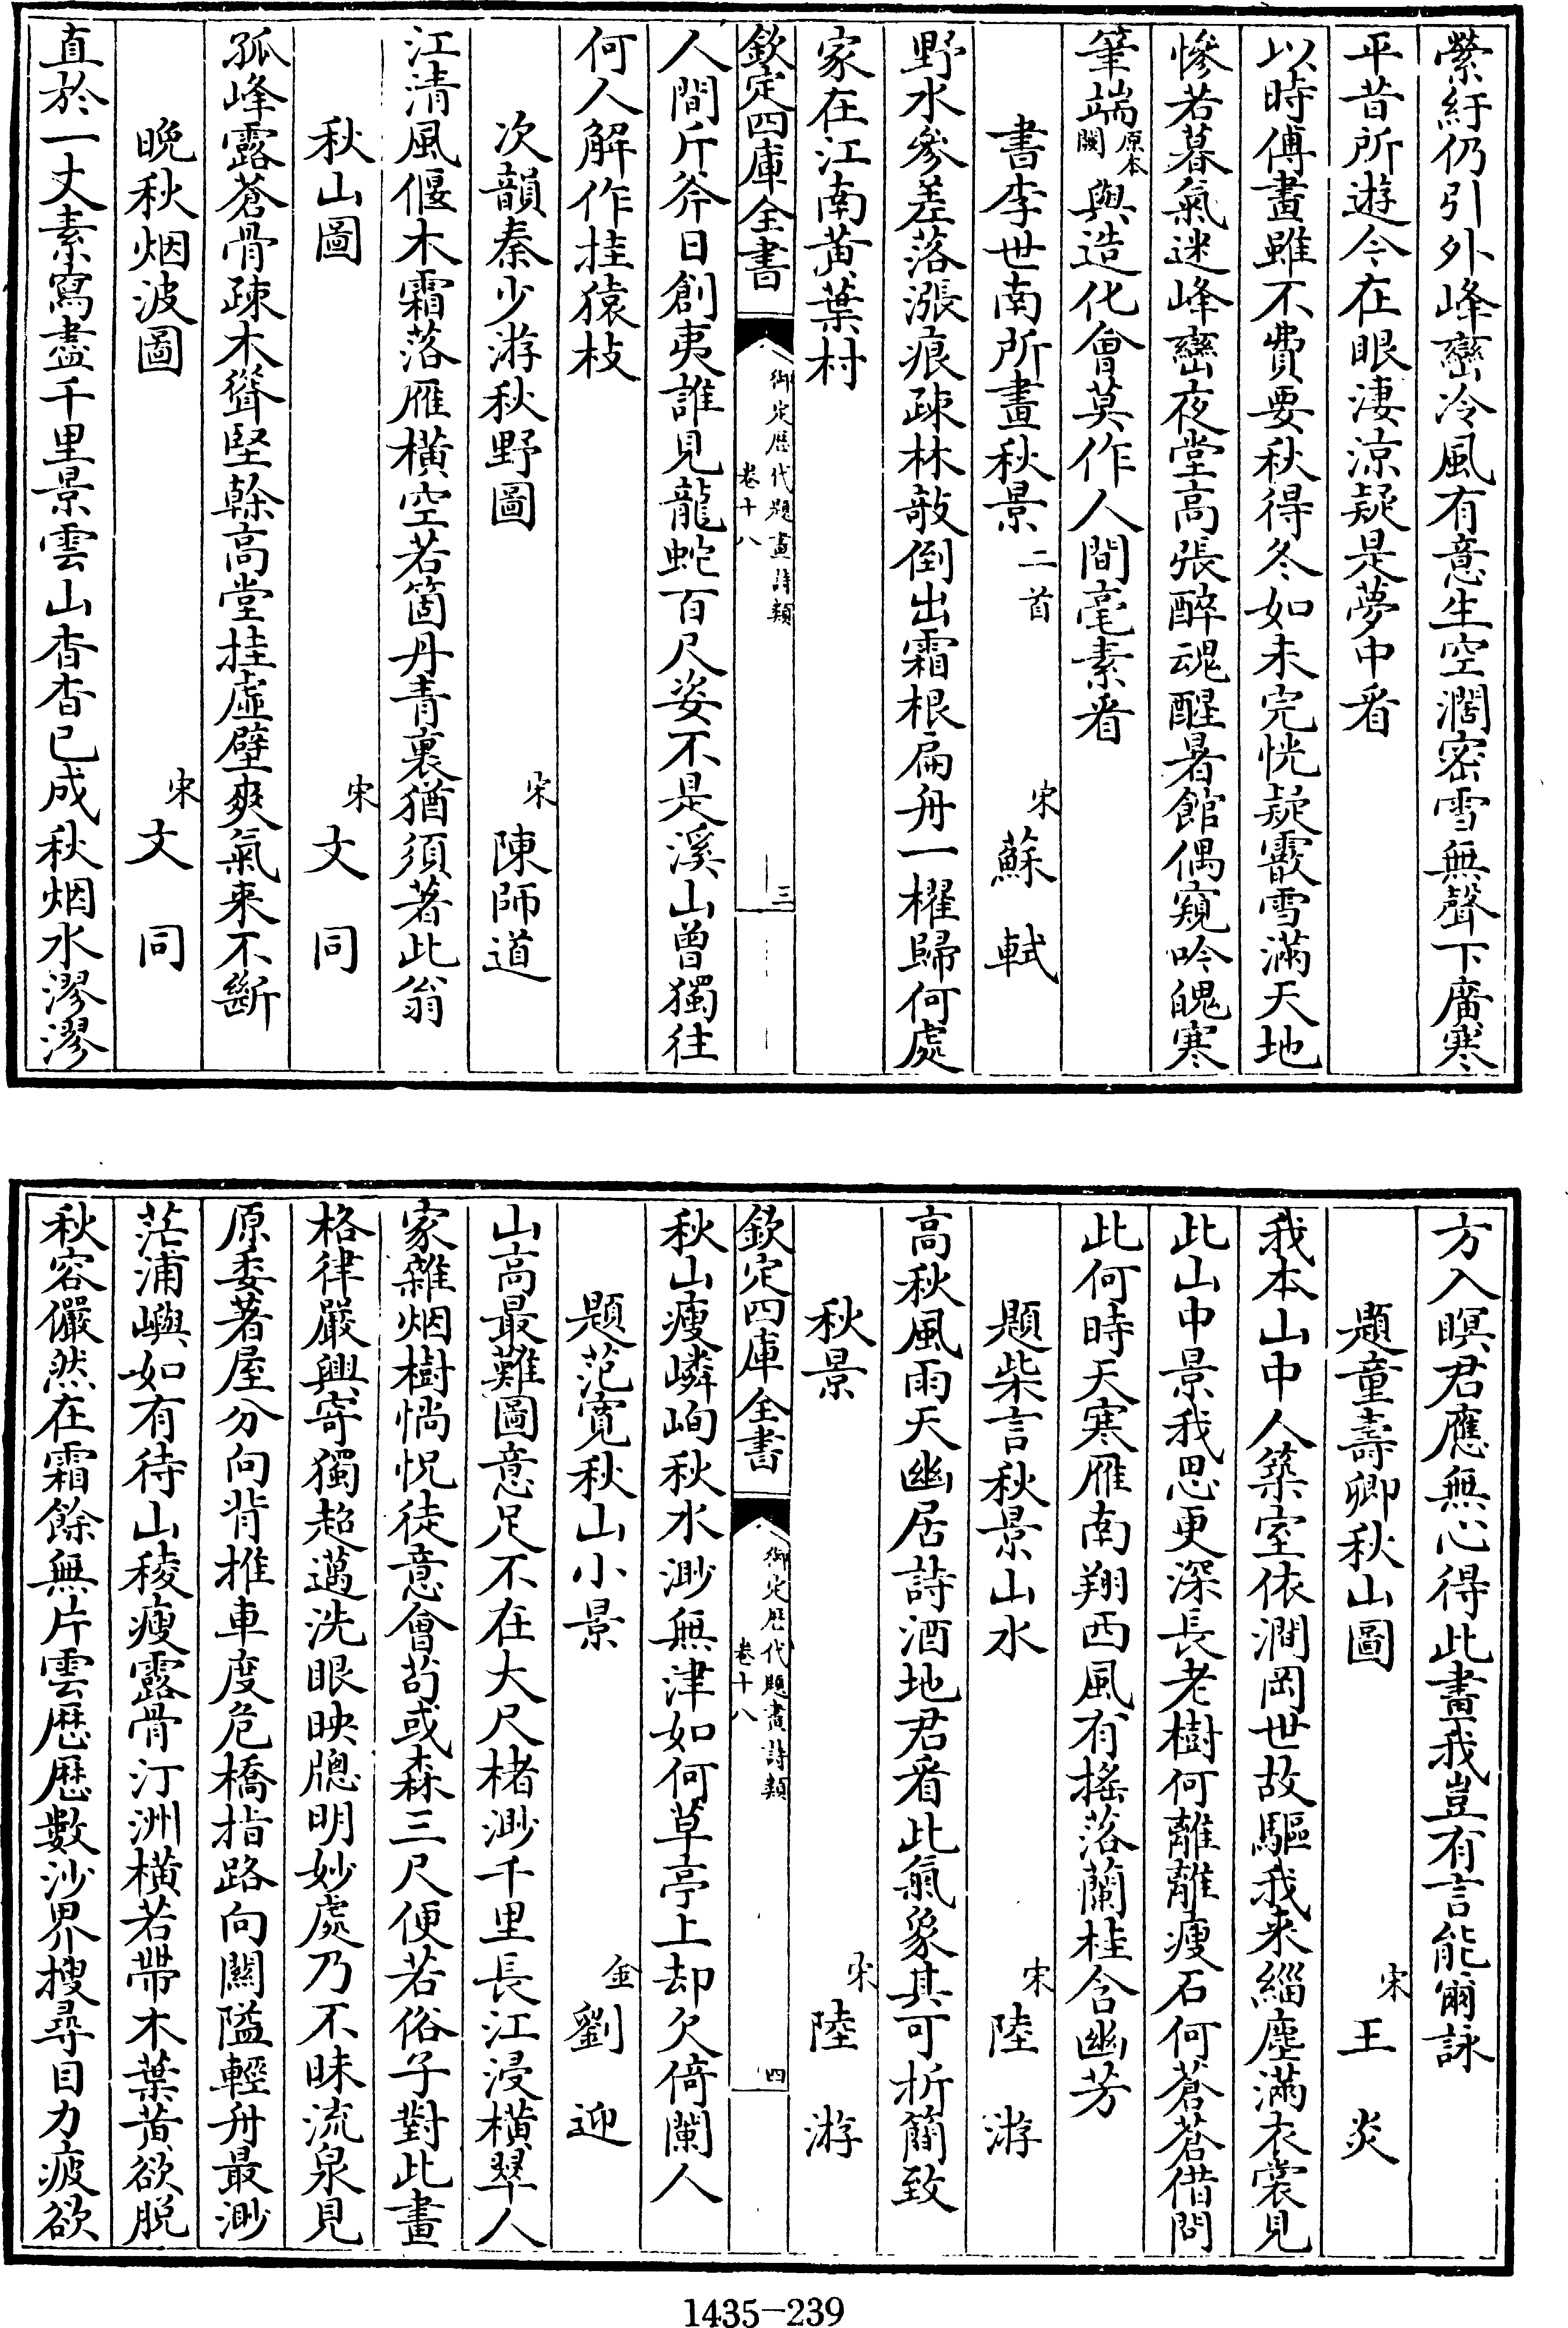 縈紆仍引外峰巒冷風有意生空濶密雪無聲下廣寒
平昔所遊今在眼淒涼疑是夢中看
以時傅畫雖不費要秋得冬如未完恍疑霰雪滿天地
慘若暮氣迷峰巒夜堂高張醉魂醒暑館偶窺吟魄寒
筆端原本闕與造化會莫作人間毫素看
書李世南所畫秋景二首 宋蘇軾
野水參差落漲痕疎林攲倒出霜根扁舟一櫂歸何處
家在江南黃葉村
欽定四庫全書 御定歷代題畫詩類 卷十八 三
人間斤斧日創夷誰見龍蛇百尺姿不是溪山曾獨往
何人解作挂猿枝
次韻秦少游秋野圖 宋陳師道
江清風偃木霜落雁橫空若箇丹青裏猶須著此翁
秋山圖 宋文同
孤峰露蒼骨疎木聳堅幹高堂挂虛壁爽氣來不斷
晚秋烟波圖 宋文同
直於一丈素寫盡千里景雲山杳杳已成秋烟水漻漻
方入暝君應無心得此畫我豈有言能爾詠
題童壽卿秋山圖 宋王炎
我本山中人築室依澗岡世故驅我來緇塵滿衣裳見
此山中景我思更深長老樹何離離瘦石何蒼蒼借問
此何時天寒雁南翔西風有搖落蘭桂含幽芳
題柴言秋景山水 宋陸游
高秋風雨天幽居詩酒地君看此氣象其可折簡致
秋景 宋陸游
欽定四庫全書 御定歷代題畫詩類 卷十八 四
秋山瘦嶙峋秋水渺無津如何草亭上却欠倚闌人
題范寬秋山小景 金劉迎
山高最難圖意足不在大尺楮渺千里長江浸橫翠人
家雜烟樹惝怳徒意會苟或森三尺便若俗子對此畫
格律嚴興寄獨超邁洗眼映牕明妙處乃不昧流泉見
原委著屋分向背推車度危橋指路向關隘輕舟最渺
茫浦嶼如有待山稜瘦露骨汀洲橫若帶木葉黃欲脫
秋容儼然在霜餘無片雲歷歷數沙界搜尋目力疲欲
1435-239